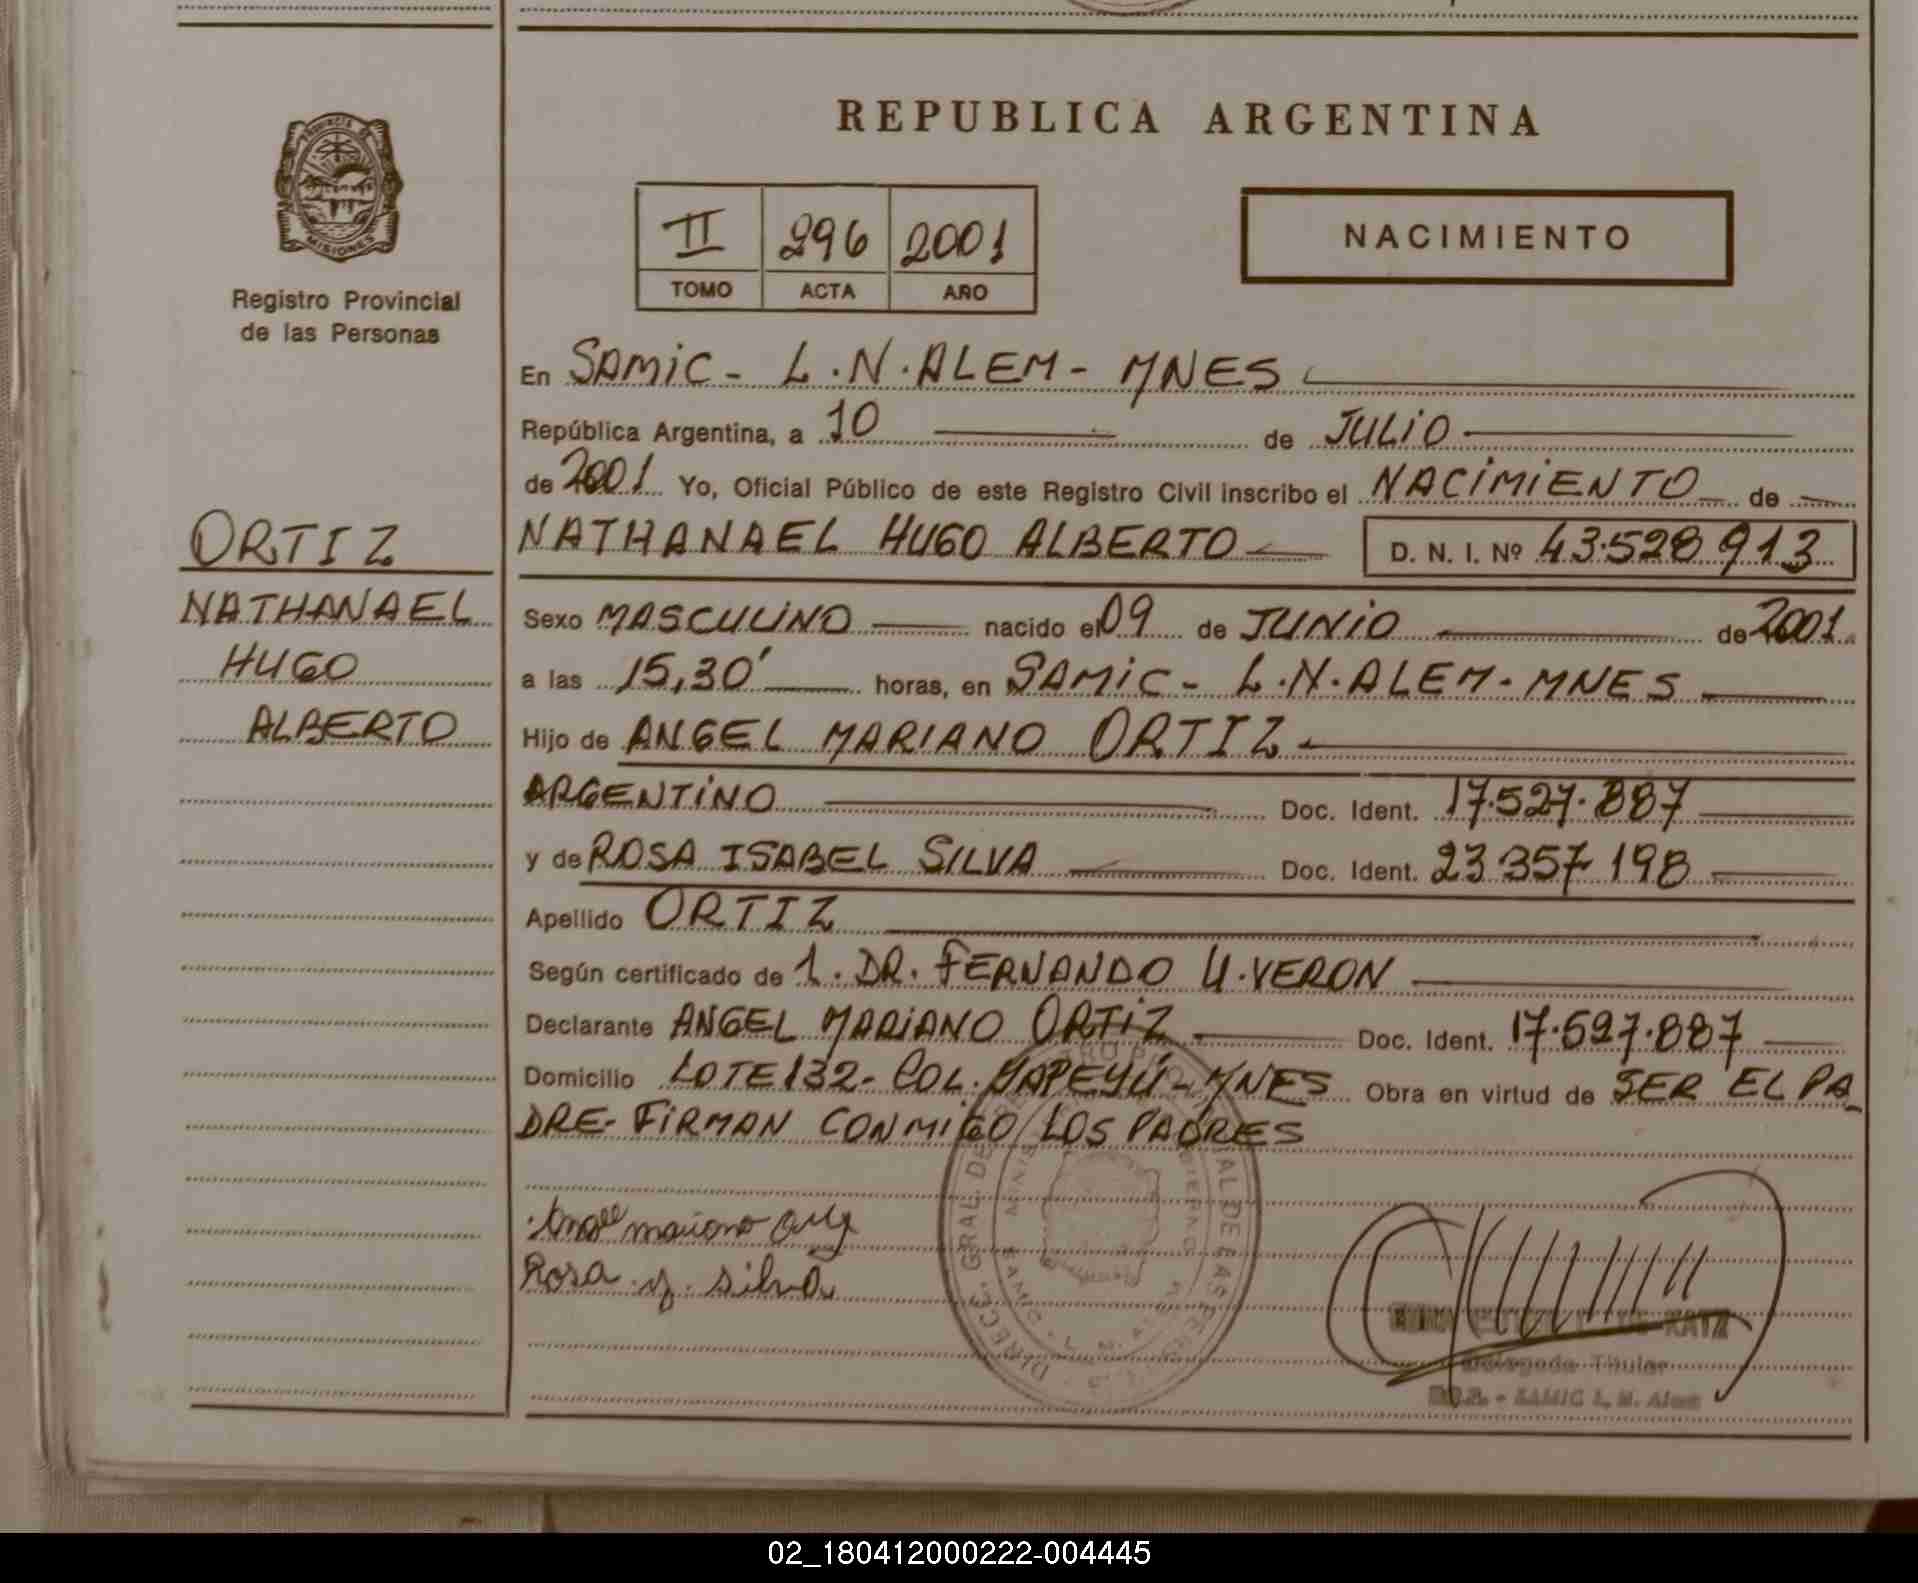 REPUBLICA ARGENTINA
PROVINCIA DE
MISIONES
Registro Provincial
de las Personas
II 296 2001
TOMO ACTA AÑO
NACIMIENTO
En SAMIC - L.N.ALEM - MNES
República Argentina, a 10 de JULIO
de 2001 Yo, Oficial Público de este Registro Civil inscribo el NACIMIENTO de
NATHANAEL HUGO ALBERTO D. N. I. Nº 43.528 913
ORTIZ
NATHANAEL
HUGO
ALBERTO
Sexo MASCULINO nacido el 09 de JUNIO de 2001
a las 15,30' horas, en SAMIC - L.N.ALEM - MNES
Hijo de ANGEL MARIANO ORTIZ
ARGENTINO Doc. Ident. 17.527.887
y de ROSA ISABEL SILVA Doc. Ident. 23 357 198
Apellido ORTIZ
Según certificado de 1. DR. FERNANDO U. VERON
Declarante ANGEL MARIANO ORTIZ Doc. Ident. 17.527.887
Domicilio LOTE 132 - COL. YAPEYÚ - MNES Obra en virtud de SER EL PA
DRE - FIRMAN CONMIGO LOS PADRES
Angel mariano Ortiz
Rosa y. silva
KATZ
Delegada Titular
SAMIC L. N. Alem
02_180412000222-004445